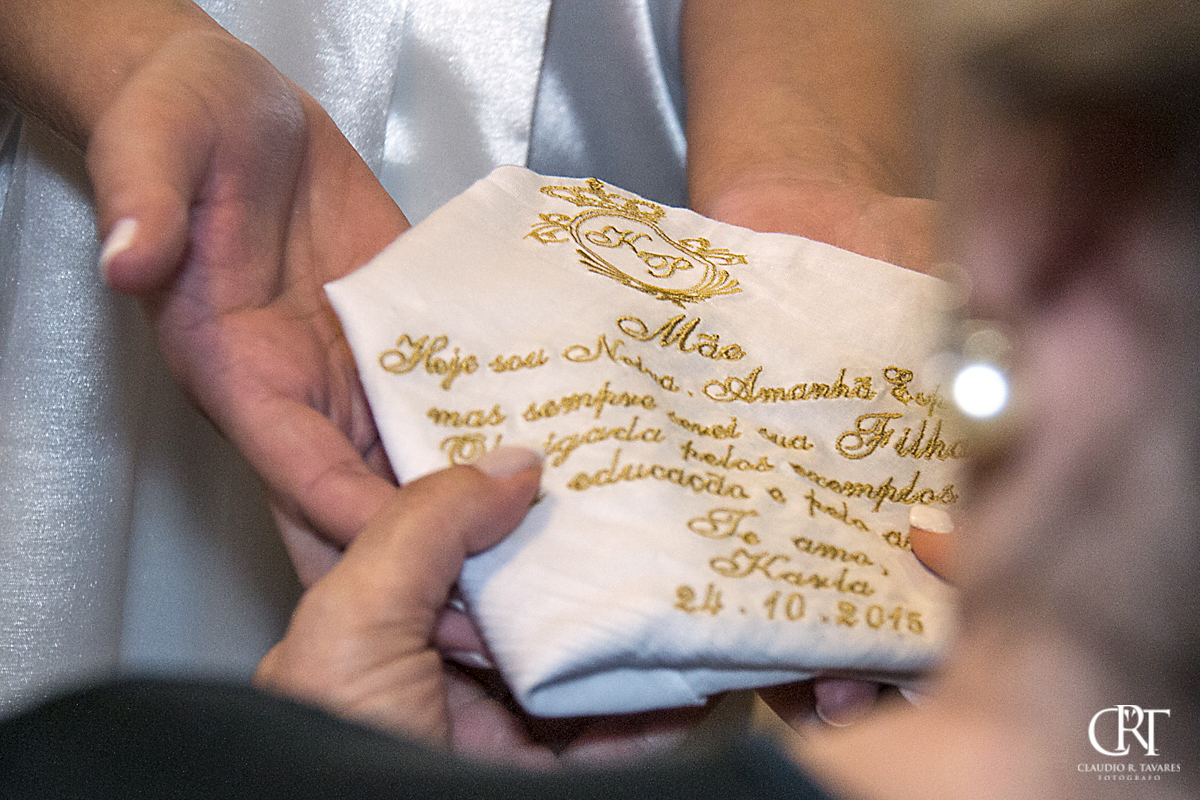 K P
Mãe
Hoje sou Noiva. Amanhã
mas sempre serei sua Filha
Obrigada pelos exemplos
educação e pelo
Te amo,
Karla
24.10.2015
CRT
CLAUDIO R. TAVARES
FOTÓGRAFO